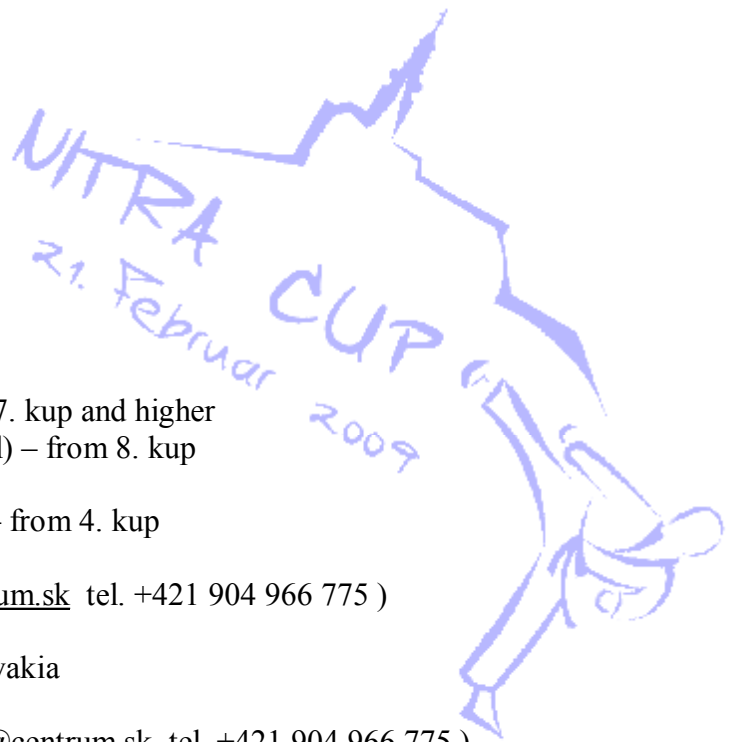 NITRA CUP
21. Februar 2009
7. kup and higher
) – from 8. kup
- from 4. kup
um.sk tel. +421 904 966 775 )
vakia
@centrum.sk tel. +421 904 966 775 )